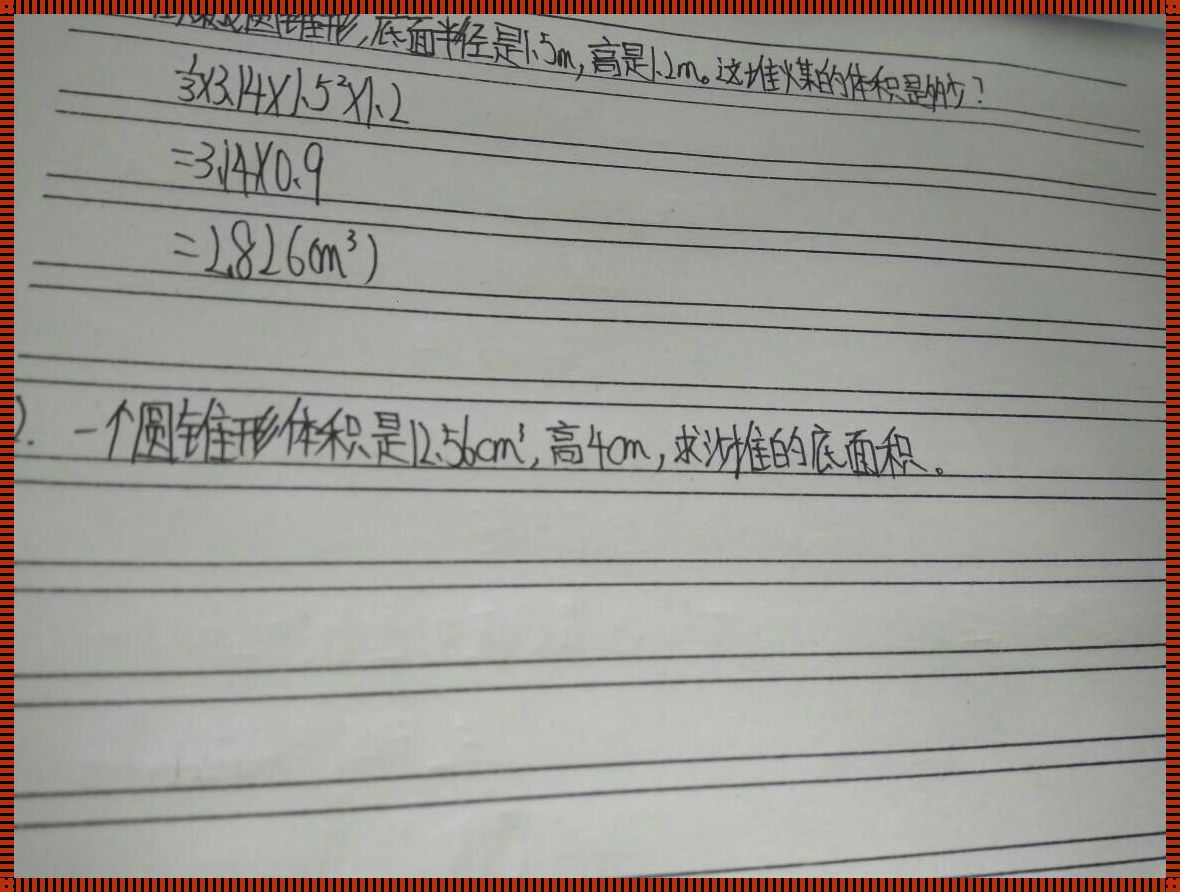 圆锥形,底面半径是1.5m,高是1.2m。这堆煤的体积是多少?
1/3×3.14×1.5²×1.2
=3.14×0.9
=2.826(m³)
2. 一个圆锥形体积是12.56cm³,高4cm,求沙堆的底面积。